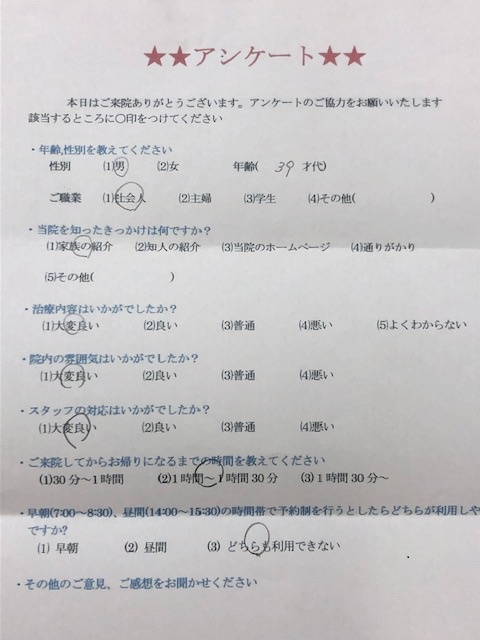 ★★アンケート★★
本日はご来院ありがとうございます。アンケートのご協力をお願いいたします
該当するところに〇印をつけてください
・年齢,性別を教えてください
性別 (1)男 (2)女 年齢( 39 才代)
ご職業 (1)社会人 (2)主婦 (3)学生 (4)その他( )
・当院を知ったきっかけは何ですか？
(1)家族の紹介 (2)知人の紹介 (3)当院のホームページ (4)通りがかり
(5)その他( )
・治療内容はいかがでしたか？
(1)大変良い (2)良い (3)普通 (4)悪い (5)よくわからない
・院内の雰囲気はいかがでしたか？
(1)大変良い (2)良い (3)普通 (4)悪い
・スタッフの対応はいかがでしたか？
(1)大変良い (2)良い (3)普通 (4)悪い
・ご来院してからお帰りになるまでの時間を教えてください
(1)30分～1時間 (2)1時間～1時間30分 (3)1時間30分～
・早朝(7:00～8:30)、昼間(14:00～15:30)の時間帯で予約制を行うとしたらどちらが利用しや
ですか?
(1) 早朝 (2) 昼間 (3) どちらも利用できない
・その他のご意見、ご感想をお聞かせください